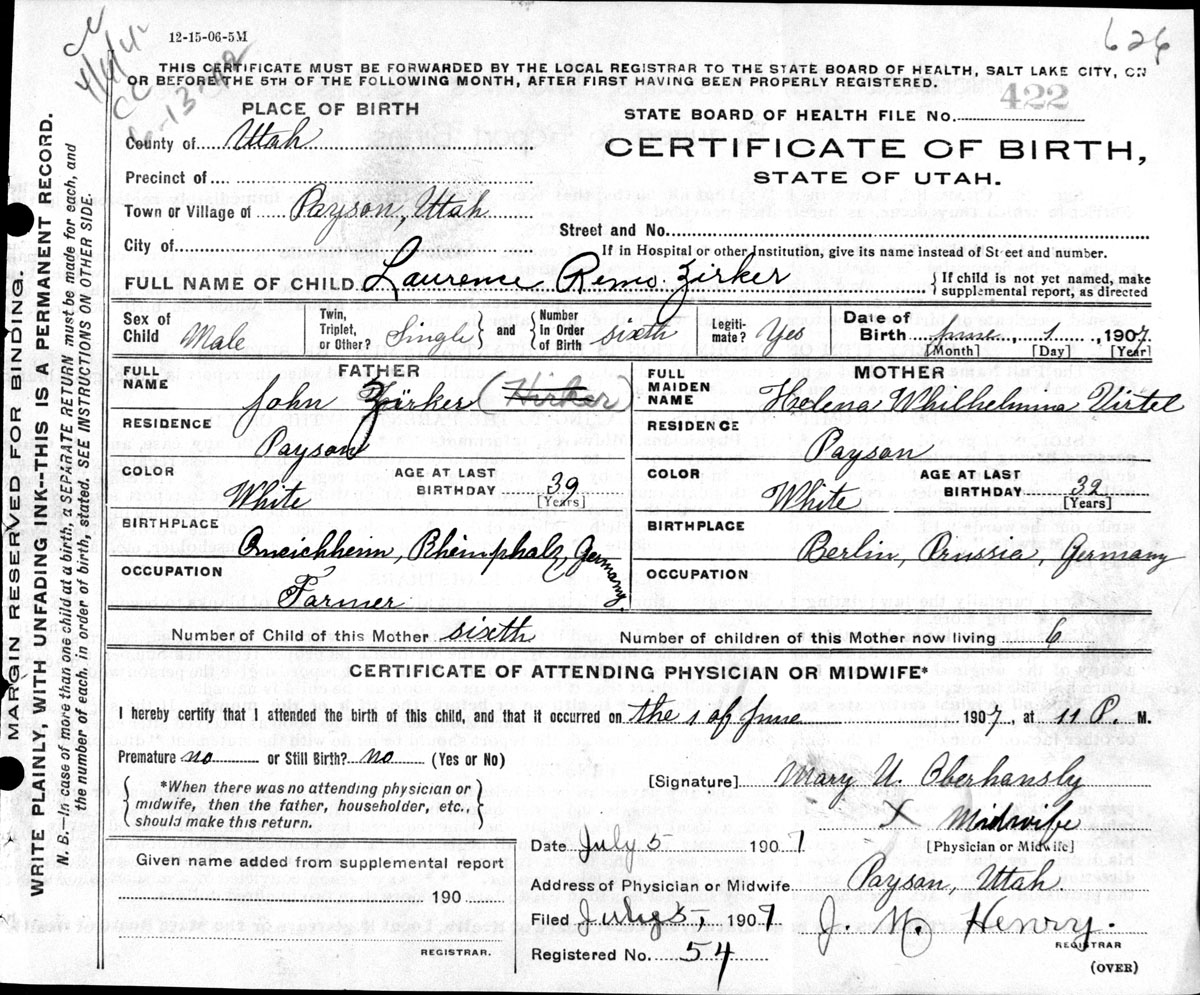 12-15-06-5M
626
4/4/42
THIS CERTIFICATE MUST BE FORWARDED BY THE LOCAL REGISTRAR TO THE STATE BOARD OF HEALTH, SALT LAKE CITY, ON
OR BEFORE THE 5TH OF THE FOLLOWING MONTH, AFTER FIRST HAVING BEEN PROPERLY REGISTERED.
422
PLACE OF BIRTH
STATE BOARD OF HEALTH FILE No.
County of Utah
CERTIFICATE OF BIRTH,
STATE OF UTAH.
Precinct of
Town or Village of Payson, Utah
Street and No.
City of
If in Hospital or other Institution, give its name instead of Street and number.
FULL NAME OF CHILD Laurence Remo. Zirker
{ If child is not yet named, make supplemental report, as directed
Sex of Child Male
Twin, Triplet, or Other? Single } and { Number in Order of Birth sixth
Legitimate? Yes
Date of Birth June, 1, 1907
[Month] [Day] [Year]
FATHER
FULL NAME John Zirker (Hirker)
RESIDENCE
Payson
COLOR White
AGE AT LAST BIRTHDAY 39
[Years]
BIRTHPLACE
Germany
OCCUPATION
Farmer
MOTHER
FULL MAIDEN NAME Helena Whilhelmina Virtel
RESIDENCE
Payson
COLOR White
AGE AT LAST BIRTHDAY 32
[Years]
BIRTHPLACE
Berlin, Prussia, Germany
OCCUPATION
Number of Child of this Mother sixth
Number of children of this Mother now living 6
CERTIFICATE OF ATTENDING PHYSICIAN OR MIDWIFE*
I hereby certify that I attended the birth of this child, and that it occurred on the 1 of June 1907, at 11 P. M.
Premature no or Still Birth? no (Yes or No)
{ *When there was no attending physician or midwife, then the father, householder, etc., should make this return. }
[Signature] Mary U. Oberhansly
X Midwife
[Physician or Midwife]
Date July 5 1907
Given name added from supplemental report
190
REGISTRAR.
Address of Physician or Midwife Payson, Utah
Filed July 5, 1907
J. M. Henry.
REGISTRAR
Registered No. 54
(OVER)
MARGIN RESERVED FOR BINDING.
WRITE PLAINLY, WITH UNFADING INK--THIS IS A PERMANENT RECORD.
N. B.—In case of more than one child at a birth, a SEPARATE RETURN must be made for each, and
the number of each, in order of birth, stated. SEE INSTRUCTIONS ON OTHER SIDE.